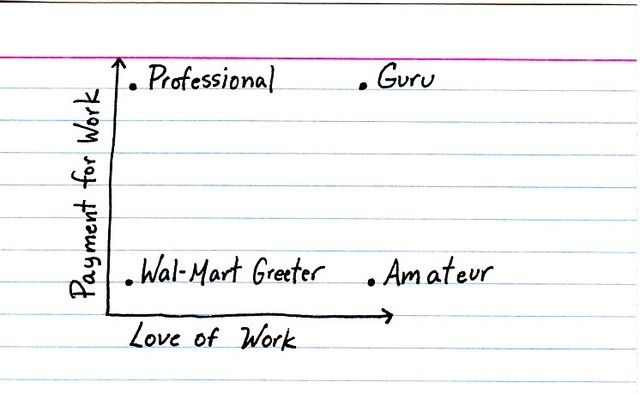 Professional
Guru
Payment for Work
Wal-Mart Greeter
Amateur
Love of Work